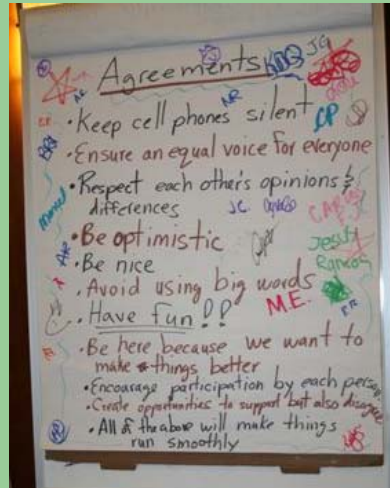 Agreements
JG
AF
NR
• Keep cell phones silent
CP
• Ensure an equal voice for everyone
• Respect each other's opinions &
differences
JC
Manuel
CARLOS
• Be optimistic
Jesus
• Be nice
Ramos
• Avoid using big words
M.E.
• Have fun!!
ER
• Be here because we want to
make things better
• Encourage participation by each person
• Create opportunities to support but also disagree
• All of the above will make things
run smoothly